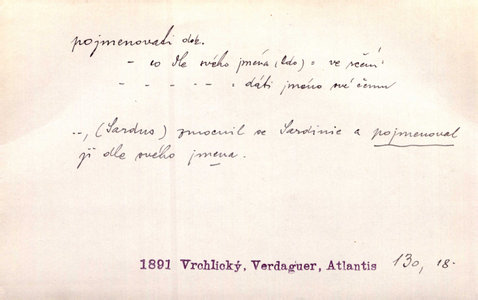 pojmenovati dok.
- co dle svého jména (kdo) = ve rčení
- - - - - = dáti jméno své čemu
--, (Sardus) zmocnil se Sardinie a pojmenoval
ji dle svého jména.
1891 Vrchlický, Verdaguer, Atlantis 130, 18.